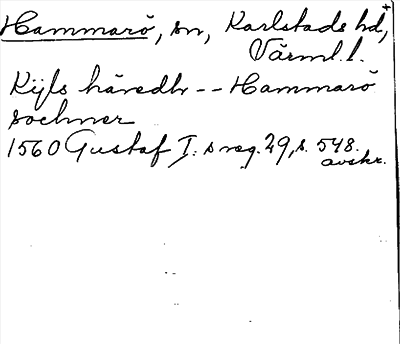 Hammarö, sn, Karlstads hd,
Värml. l.
Kijls häredh -- Hammarö
sochner
1560 Gustaf I:s reg. 29, s. 548.
avskr.